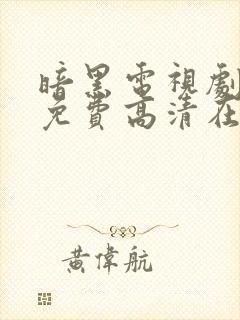 暗黑電視劇
免費高清在
黃偉航